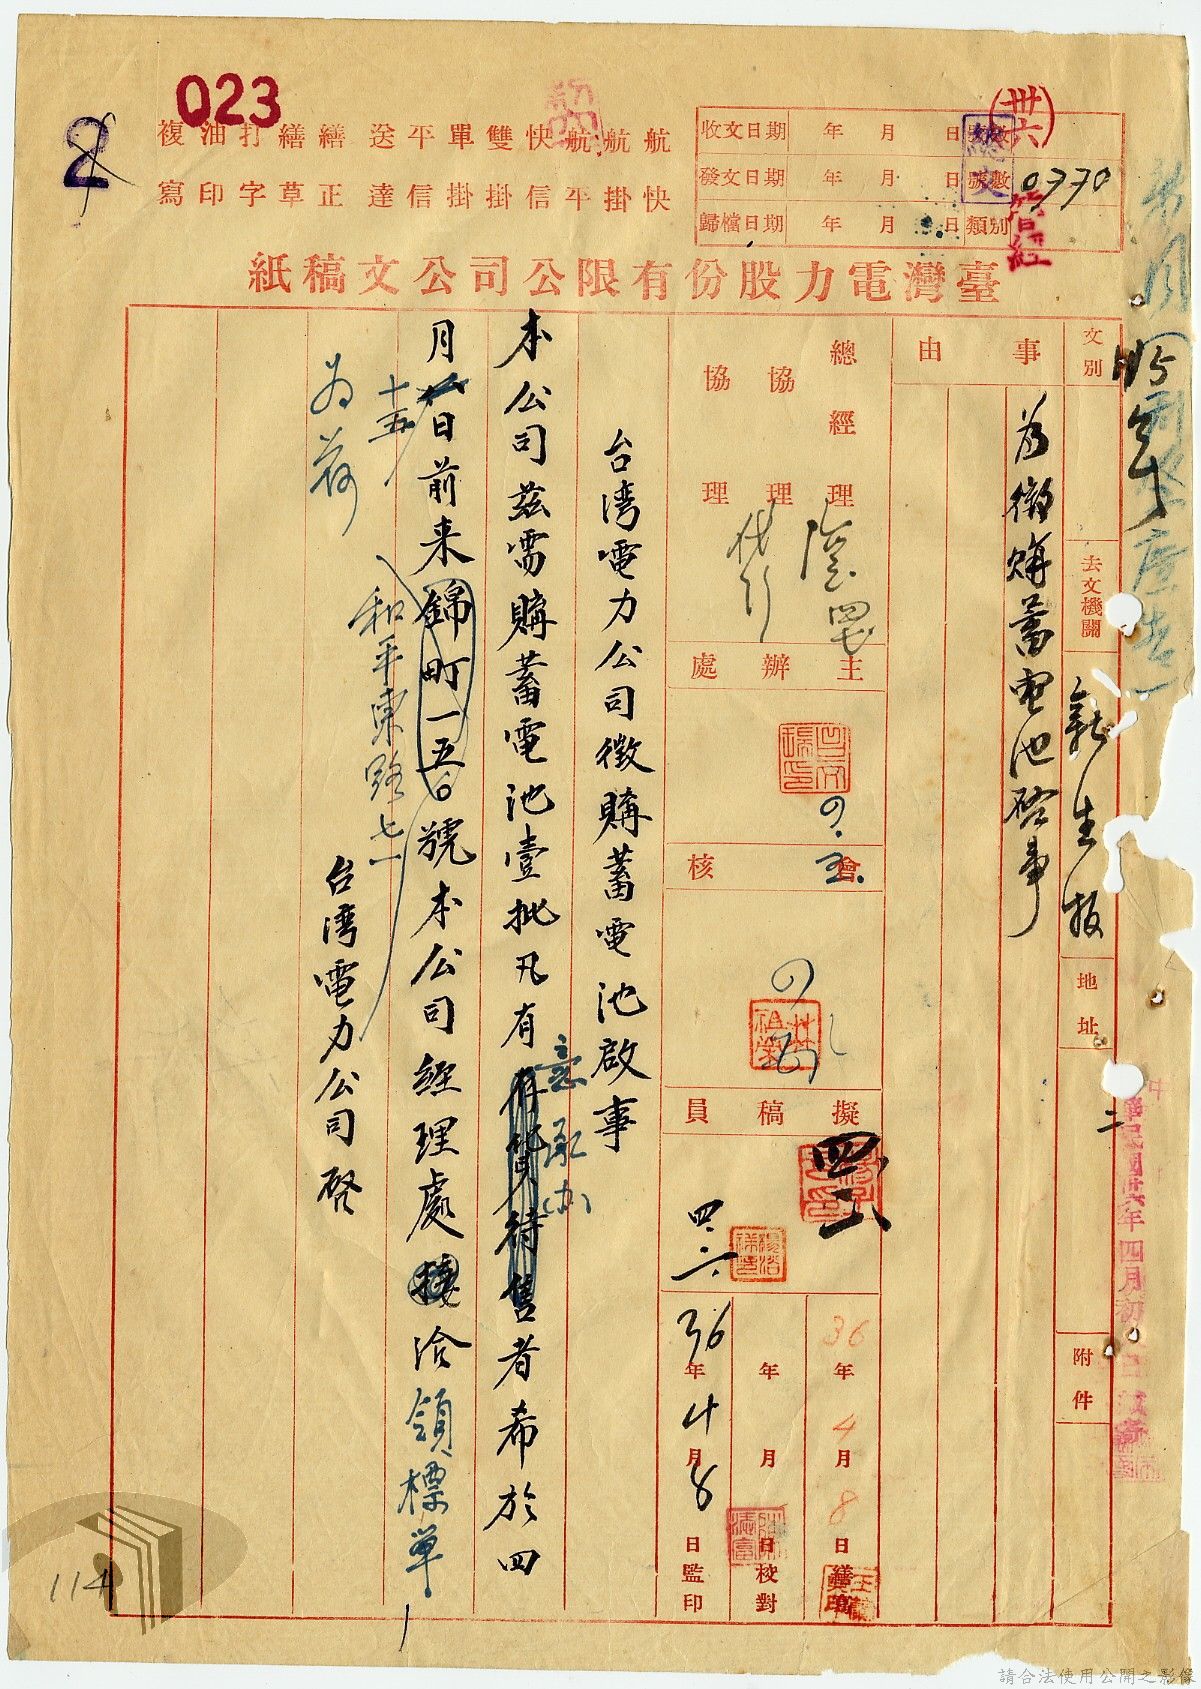 023
2
複寫 油印 打字 繕草 繕正 送達 平信 單掛 雙掛 快信 航平 航掛 航快
收文日期 年 月 日
發文日期 年 月 日 號數 0770
歸檔日期 年 月 日 類別
(卅六)
總文
臺灣電力股份有限公司公文稿紙
文別
去文機關 新生报
地址
附件
事由
為徵購蓄电池啓事
總經理
協理
協理
代行
主辦處
會核
擬稿員
四、六、
36年4月8日繕寫
年月日校對
36年4月8日監印
台湾電力公司徵購蓄電池啟事
本公司茲需購蓄電池壹批凡有存貨待售者希於四
意承办
月日前来錦町一五〇號本公司經理處接洽領標單
十五
和平東路七一
為荷
台湾電力公司啓
中華民國卅六年四月初
114
請合法使用公開之影像